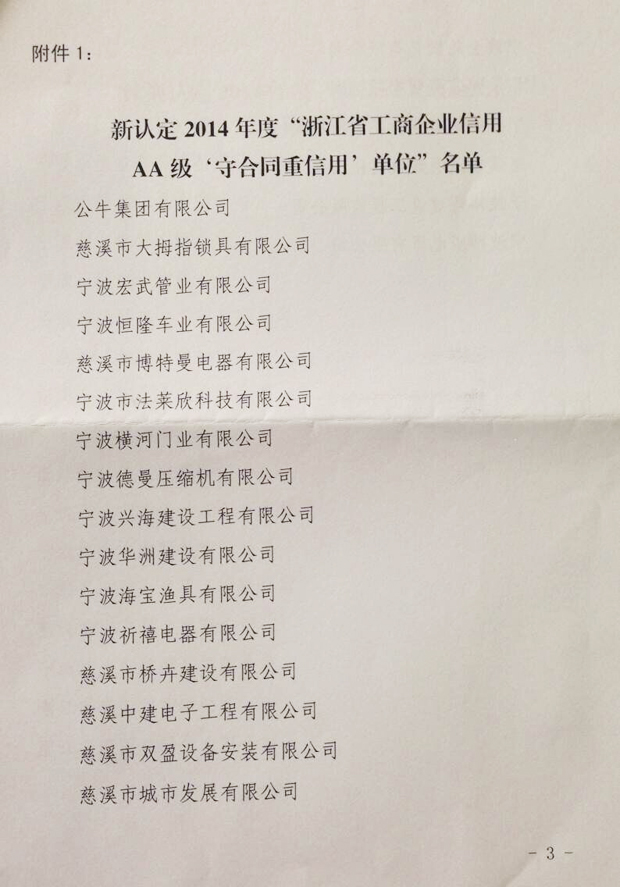 附件1：
新认定2014年度“浙江省工商企业信用
AA级‘守合同重信用’单位”名单
公牛集团有限公司
慈溪市大拇指锁具有限公司
宁波宏武管业有限公司
宁波恒隆车业有限公司
慈溪市博特曼电器有限公司
宁波市法莱欣科技有限公司
宁波横河门业有限公司
宁波德曼压缩机有限公司
宁波兴海建设工程有限公司
宁波华洲建设有限公司
宁波海宝渔具有限公司
宁波祈禧电器有限公司
慈溪市桥卉建设有限公司
慈溪中建电子工程有限公司
慈溪市双盈设备安装有限公司
慈溪市城市发展有限公司
- 3 -